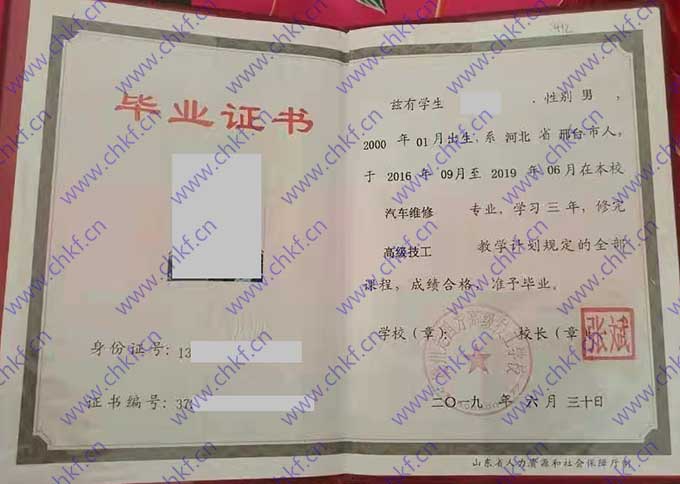 442
毕业证书
身份证号：13
证书编号：37
兹有学生 ，性别 男 ，
2000 年 01 月出生，系 河北 省 邢台市人，
于 2016 年 09 月至 2019 年 06 月在本校
汽车维修 专业，学习三年，修完
高级技工 教学计划规定的全部
课程，成绩合格，准予毕业。
学校（章）： 校长（章）
张斌
二〇一九 年 六 月 三十日
山东省人力资源和社会保障厅制
www.chkf.cn